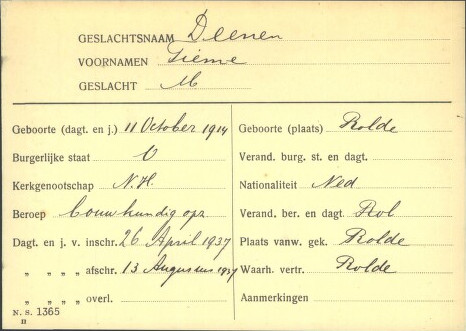 GESLACHTSNAAM Deenen
VOORNAMEN Tieme
GESLACHT M
Geboorte (dagt. en j.) 11 October 1914
Burgerlijke staat O
Kerkgenootschap N.H.
Beroep bouwkundig opz.
Dagt. en j. v. inschr. 26 April 1937
„ „ „ „ afschr. 13 Augustus 1937
„ „ „ „ overl.
N. S. 1365
H
Geboorte (plaats) Rolde
Verand. burg. st. en dagt.
Nationaliteit Ned
Verand. ber. en dagt Rol
Plaats vanw. gek. Rolde
Waarh. vertr. Rolde
Aanmerkingen